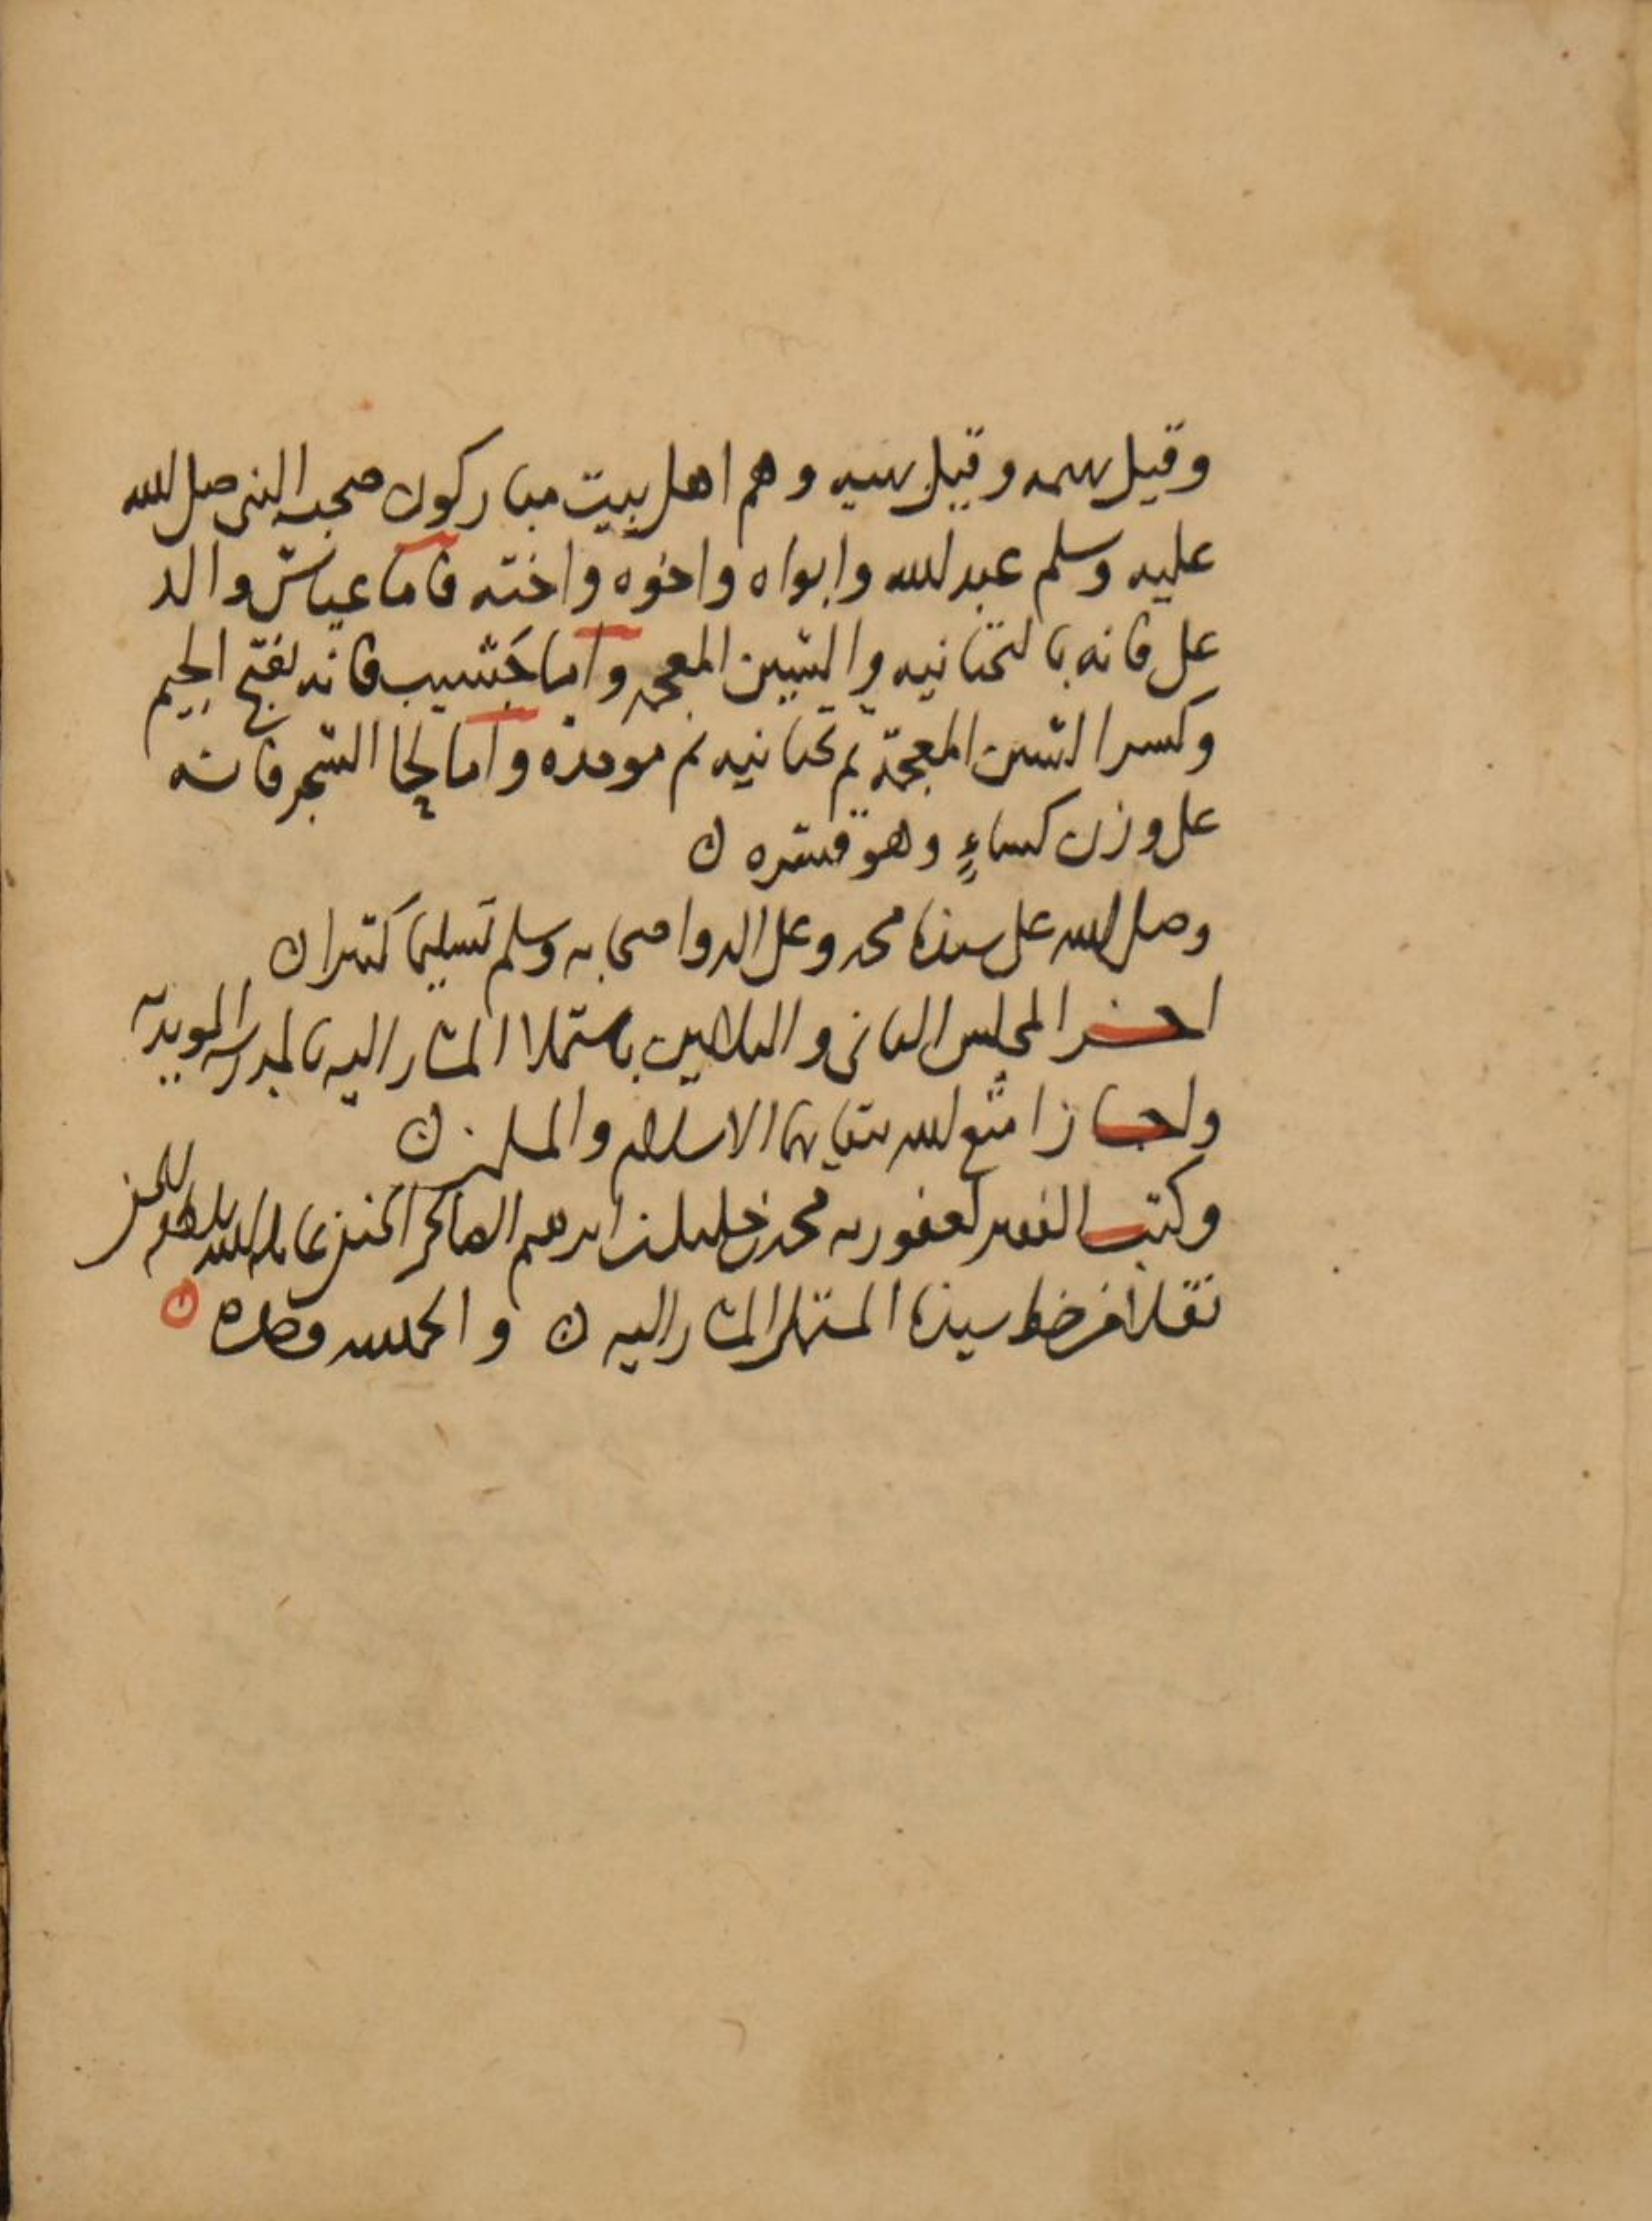 وقيل بهمه وقيل بهيه وهم اهل بيت مباركون صحب النبي صلى الله
عليه وسلم عبد الله وابواه واخوه واخته فاما عياش والد
على فانه بالتحتانيه والشين المعجمه واما جَشيب فانه بفتح الجيم
وكسر الشين المعجمة ثم تحتانيه ثم موحدة واما لحا الشجر فانه
على وزن كساءٍ وهو قشره ن
وصلى الله على سيدنا محمد وعلى اله واصحابه وسلم تسليما كثيرا ن
اخر المجلس الثاني والثلاثين باستملا المشار اليه بالمدرسه المويديه
واجاز امتع الله ببقايهما الاسلام والمسلمين ن
وكتب الفقير لعفو ربه محمد بن خليل بن ابرهيم الحنفي عامله الله بلطفه الخفي
نقلا من خط سيدنا المستملي المشار اليه ن والحمد لله وحده ن